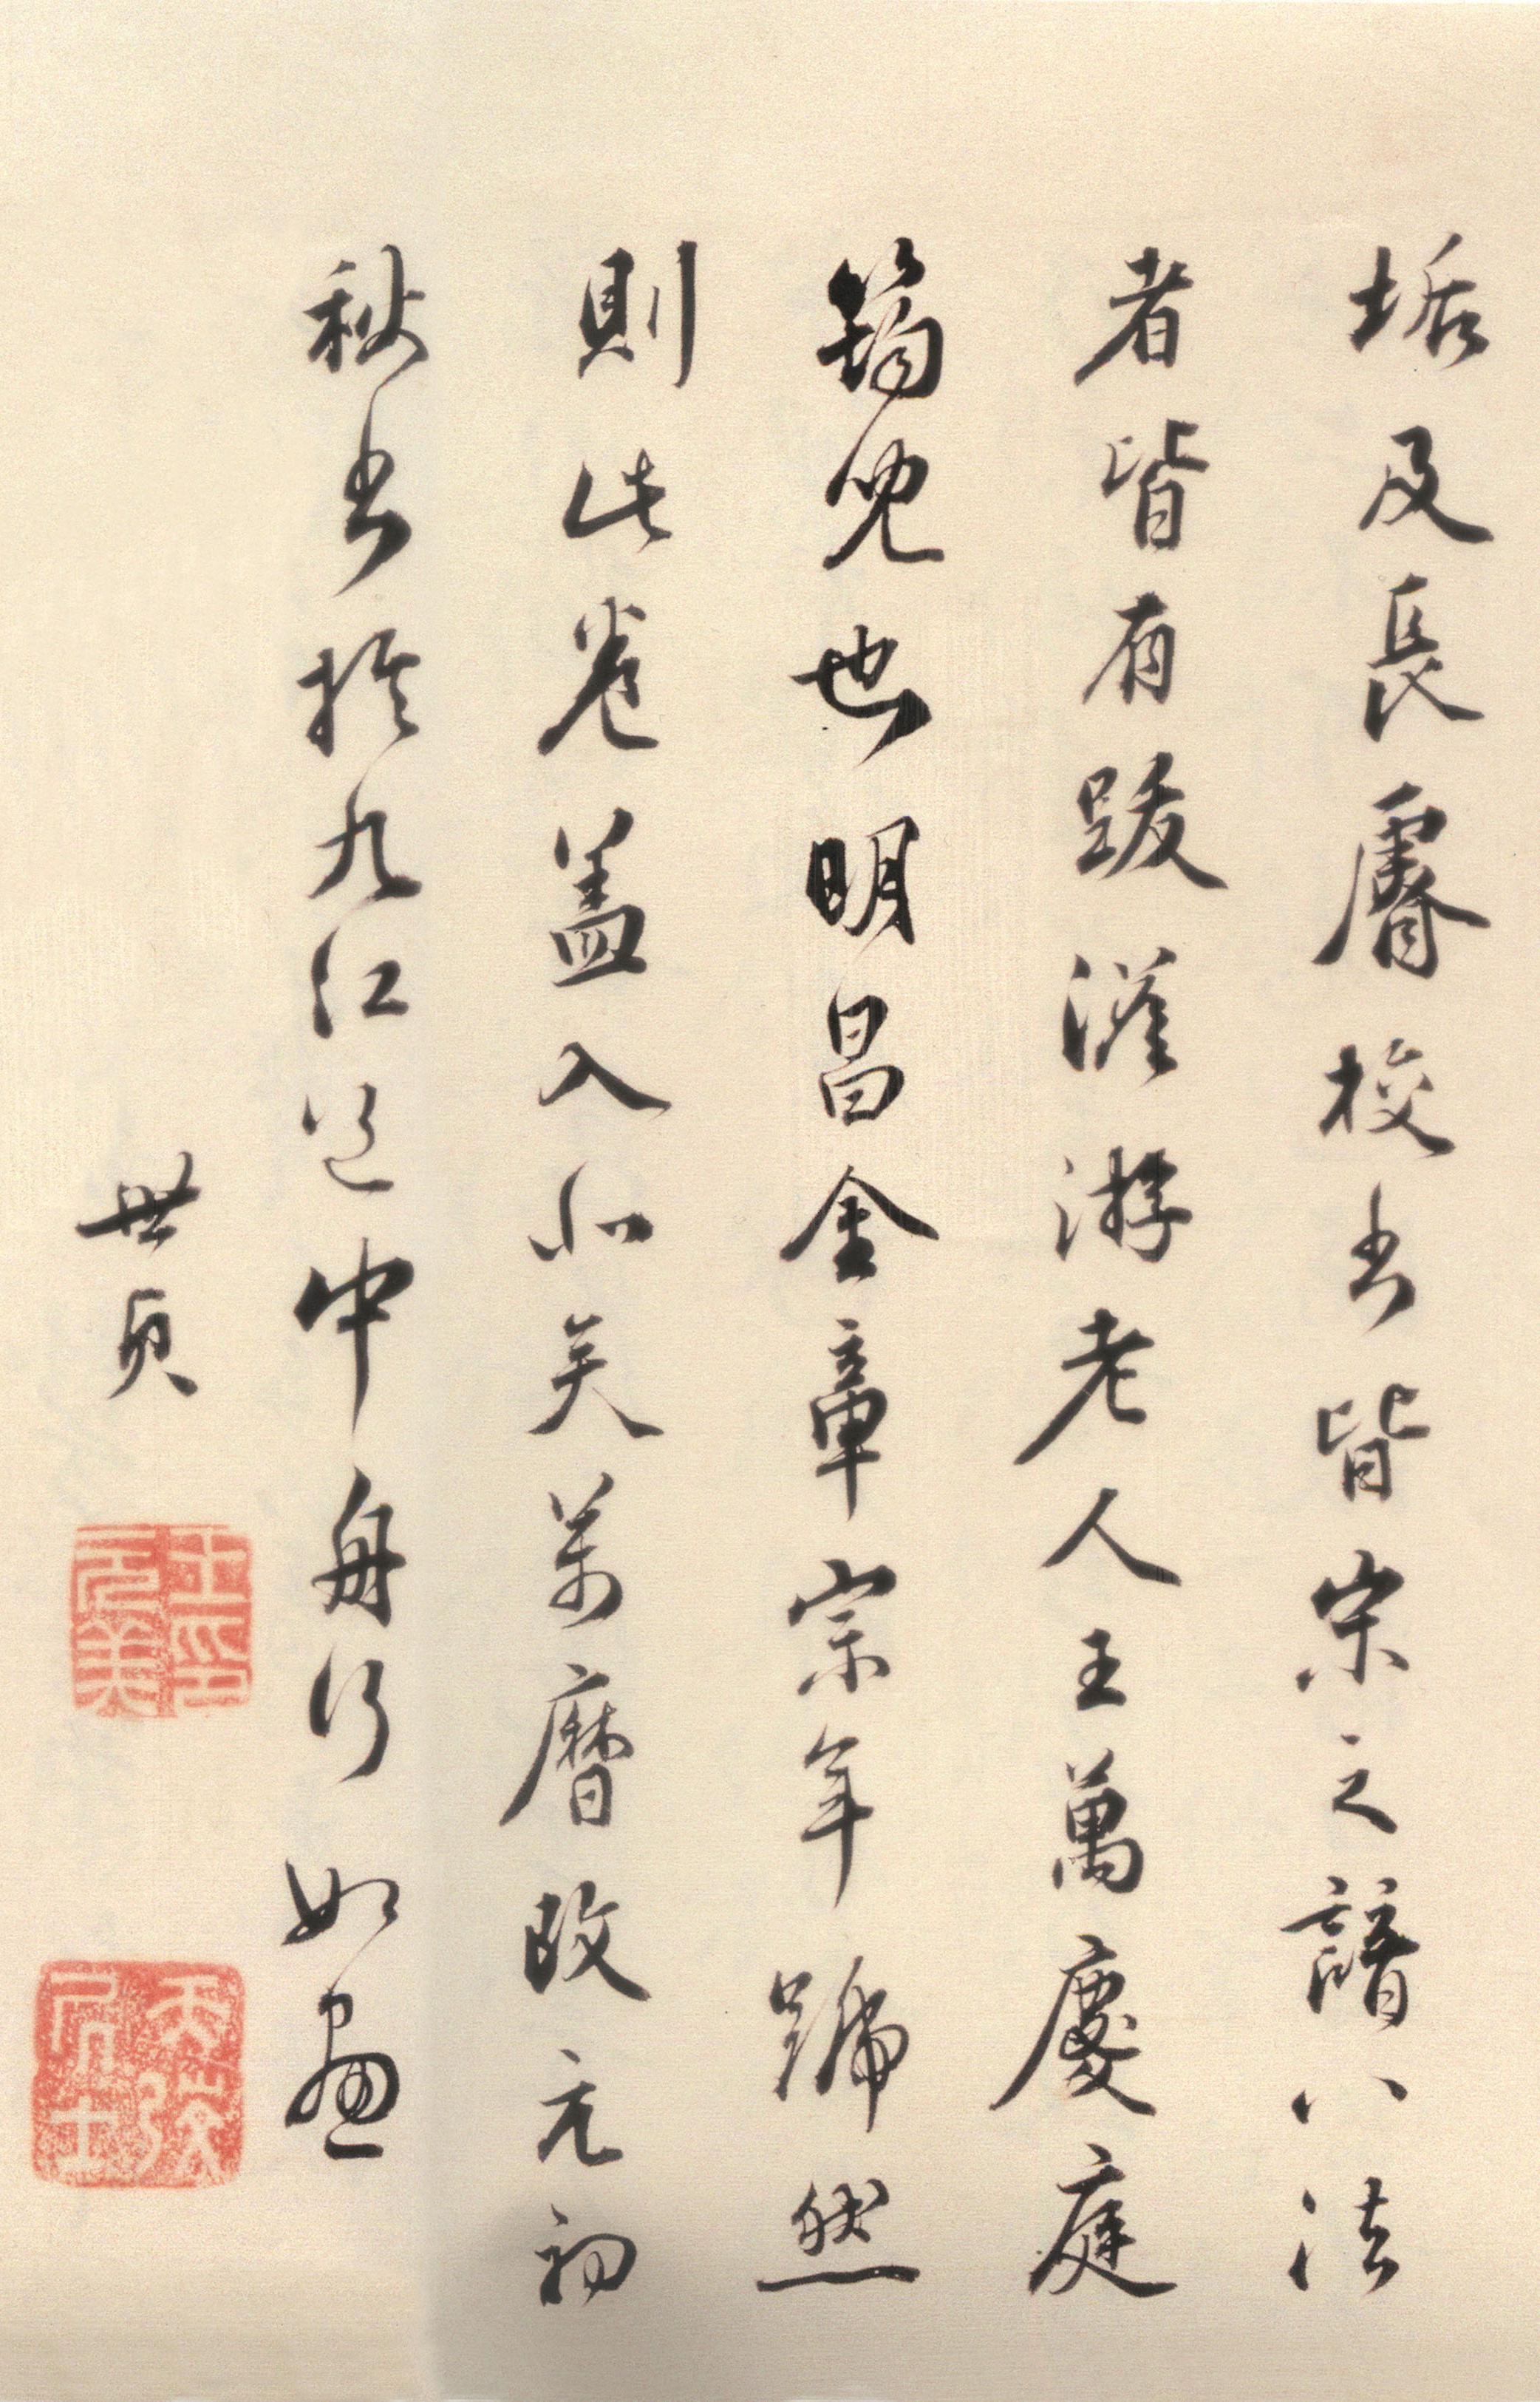 垢及長睿校書皆宋之諳八法
者皆有跋澹游老人王萬慶庭
筠兒也明昌金章宗年號然
則此卷盖入北矣萬曆改元初
秋書於九江道中舟行如畫
世貞
王印元美
天弢居士